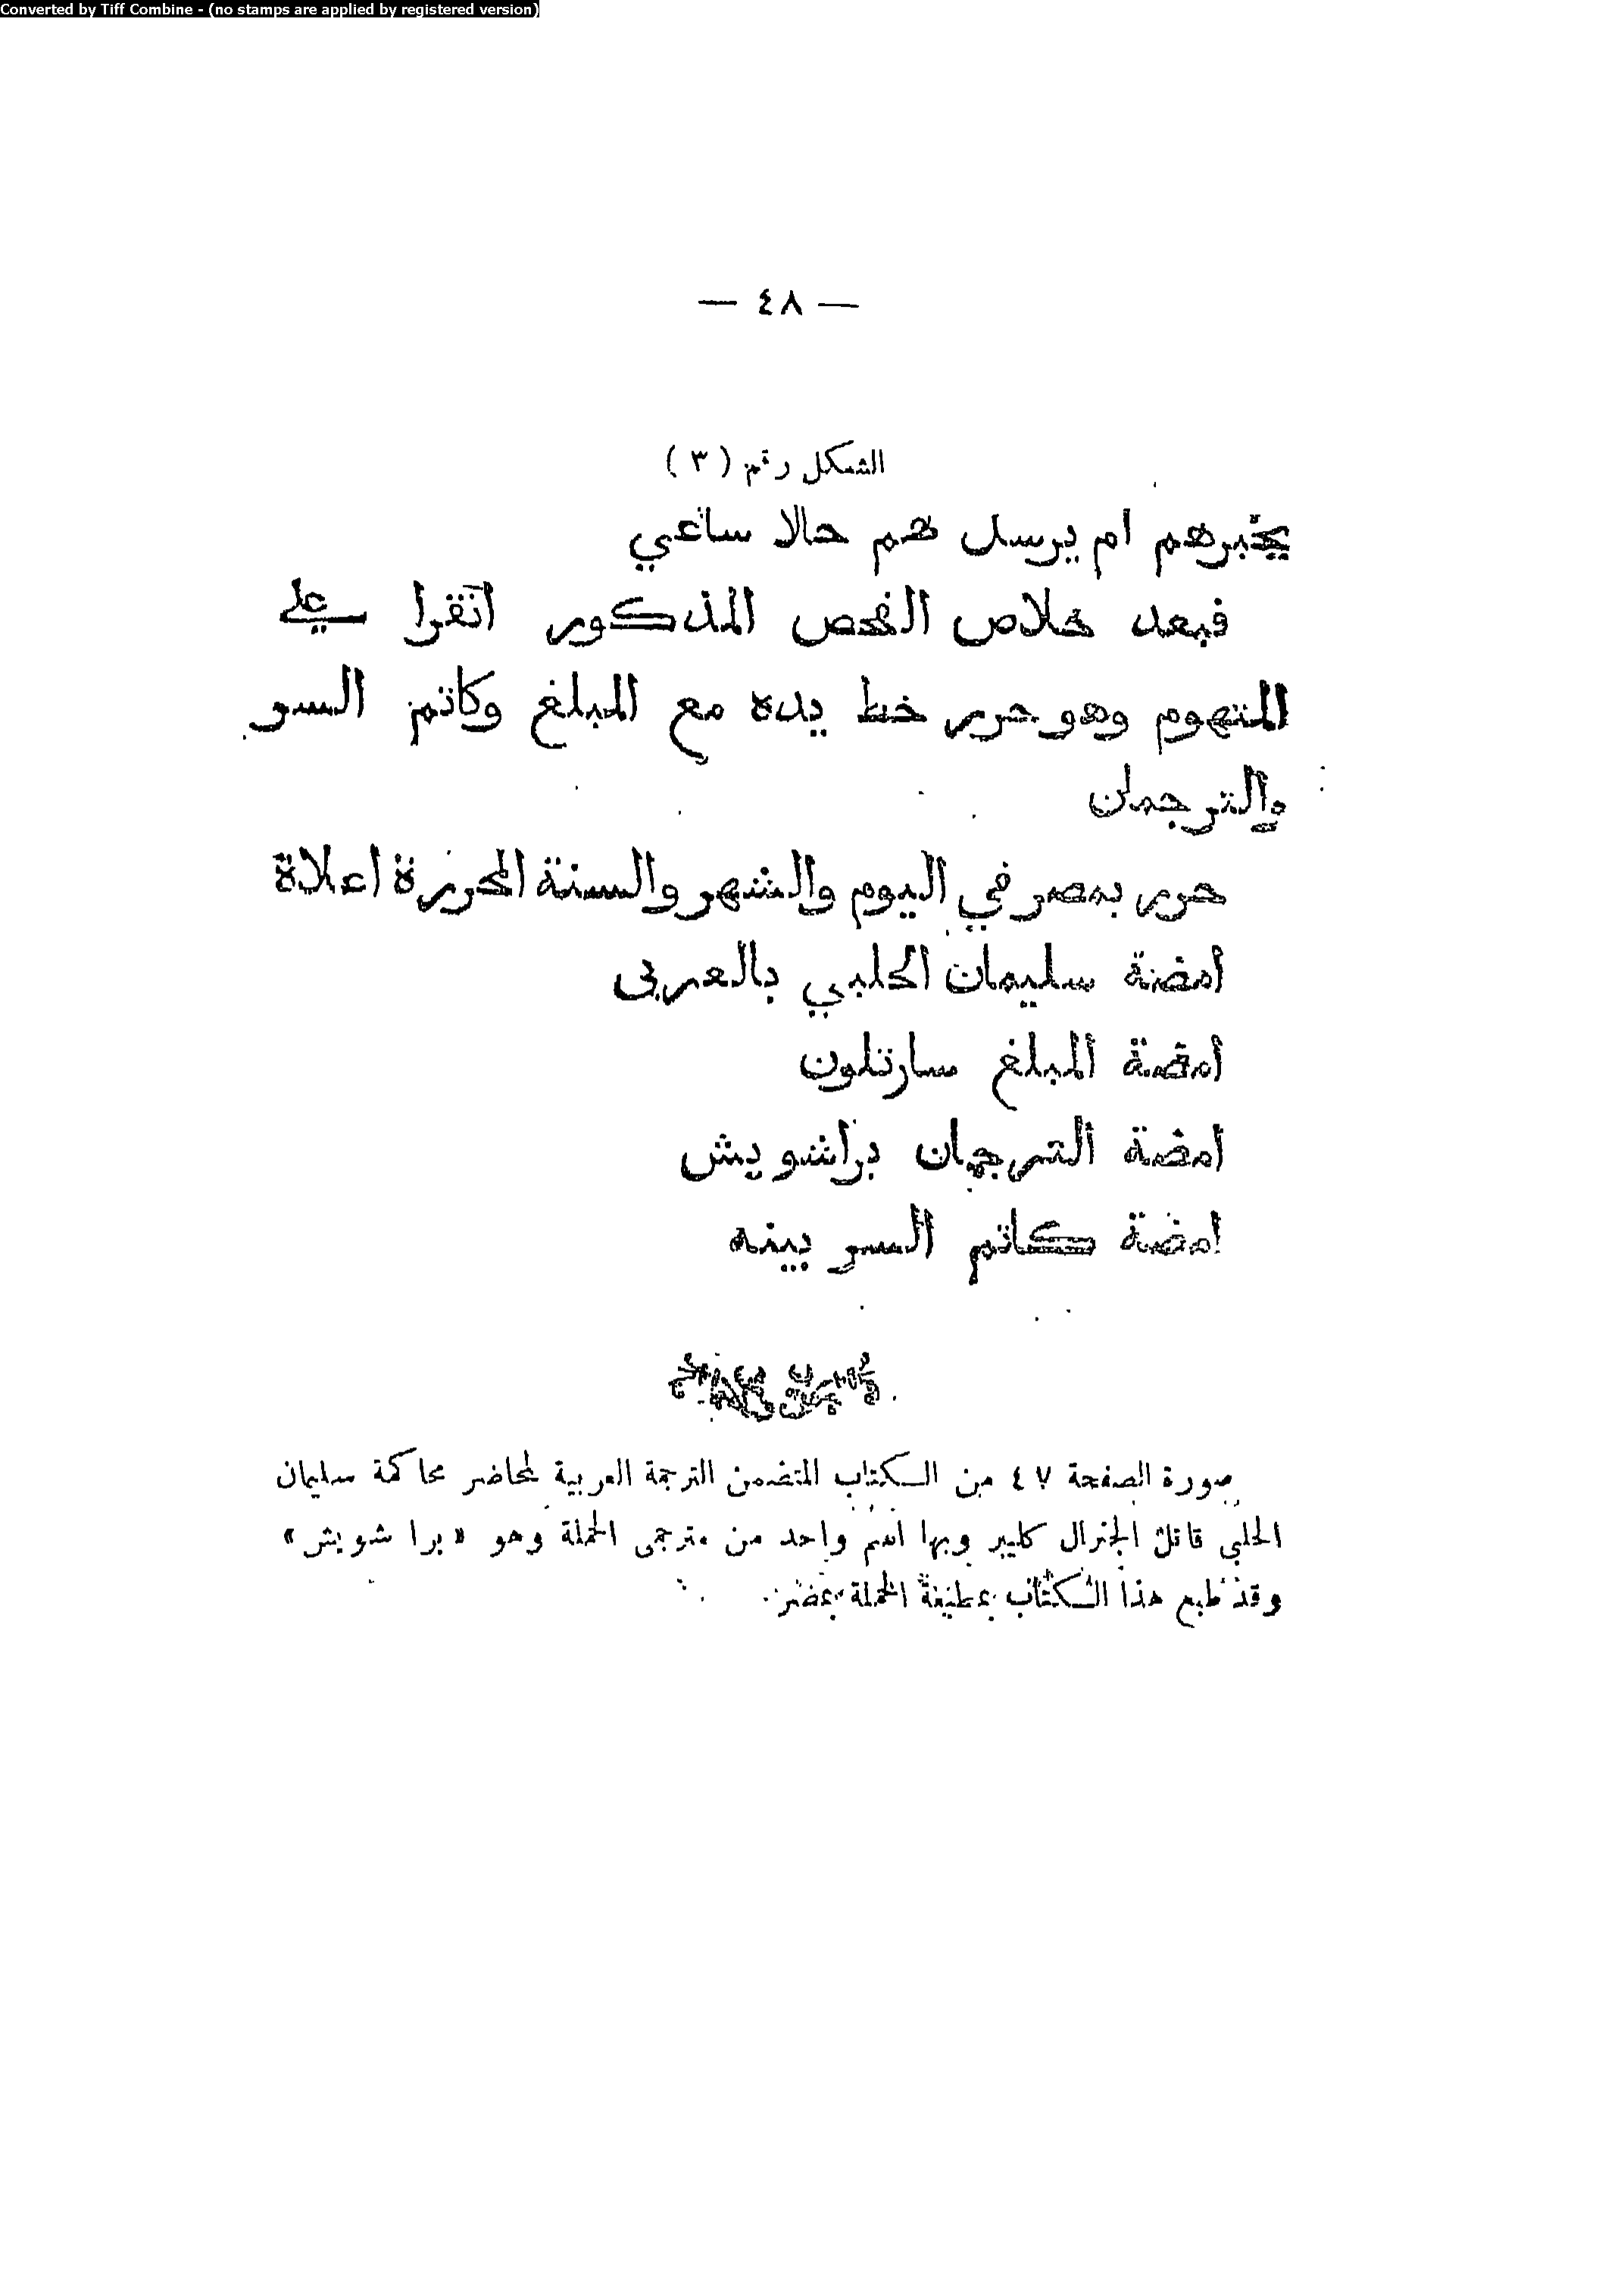 Converted by Tiff Combine - (no stamps are applied by registered version)
— ٤٨ —
الشكل رقم ( ٣ )
يخبرهم ام يرسل هم حالا ساعي
فبعد خلاص الفحص المذكور اتقرا علي
المتهوم وهو حرر خط يده مع المبلغ وكاتم السر
والترجمان
حرر بمصر في اليوم والشهر والسنة المحررة اعلاة
امضة سليمان الحلبي بالعربي
امضة المبلغ سارتلون
امضة الترجمان براشويش
امضة كاتم السر بينه
صورة الصفحة ٤٧ من الكتاب المتضمن الترجمة العربية لمحاضر محاكمة سليمان
الحلبي قاتل الجنرال كليبر وبها اسم واحد من مترجمى الحملة وهو « برا شويش »
وقد طبع هذا الكتاب بمطبعة الحملة بمصر .